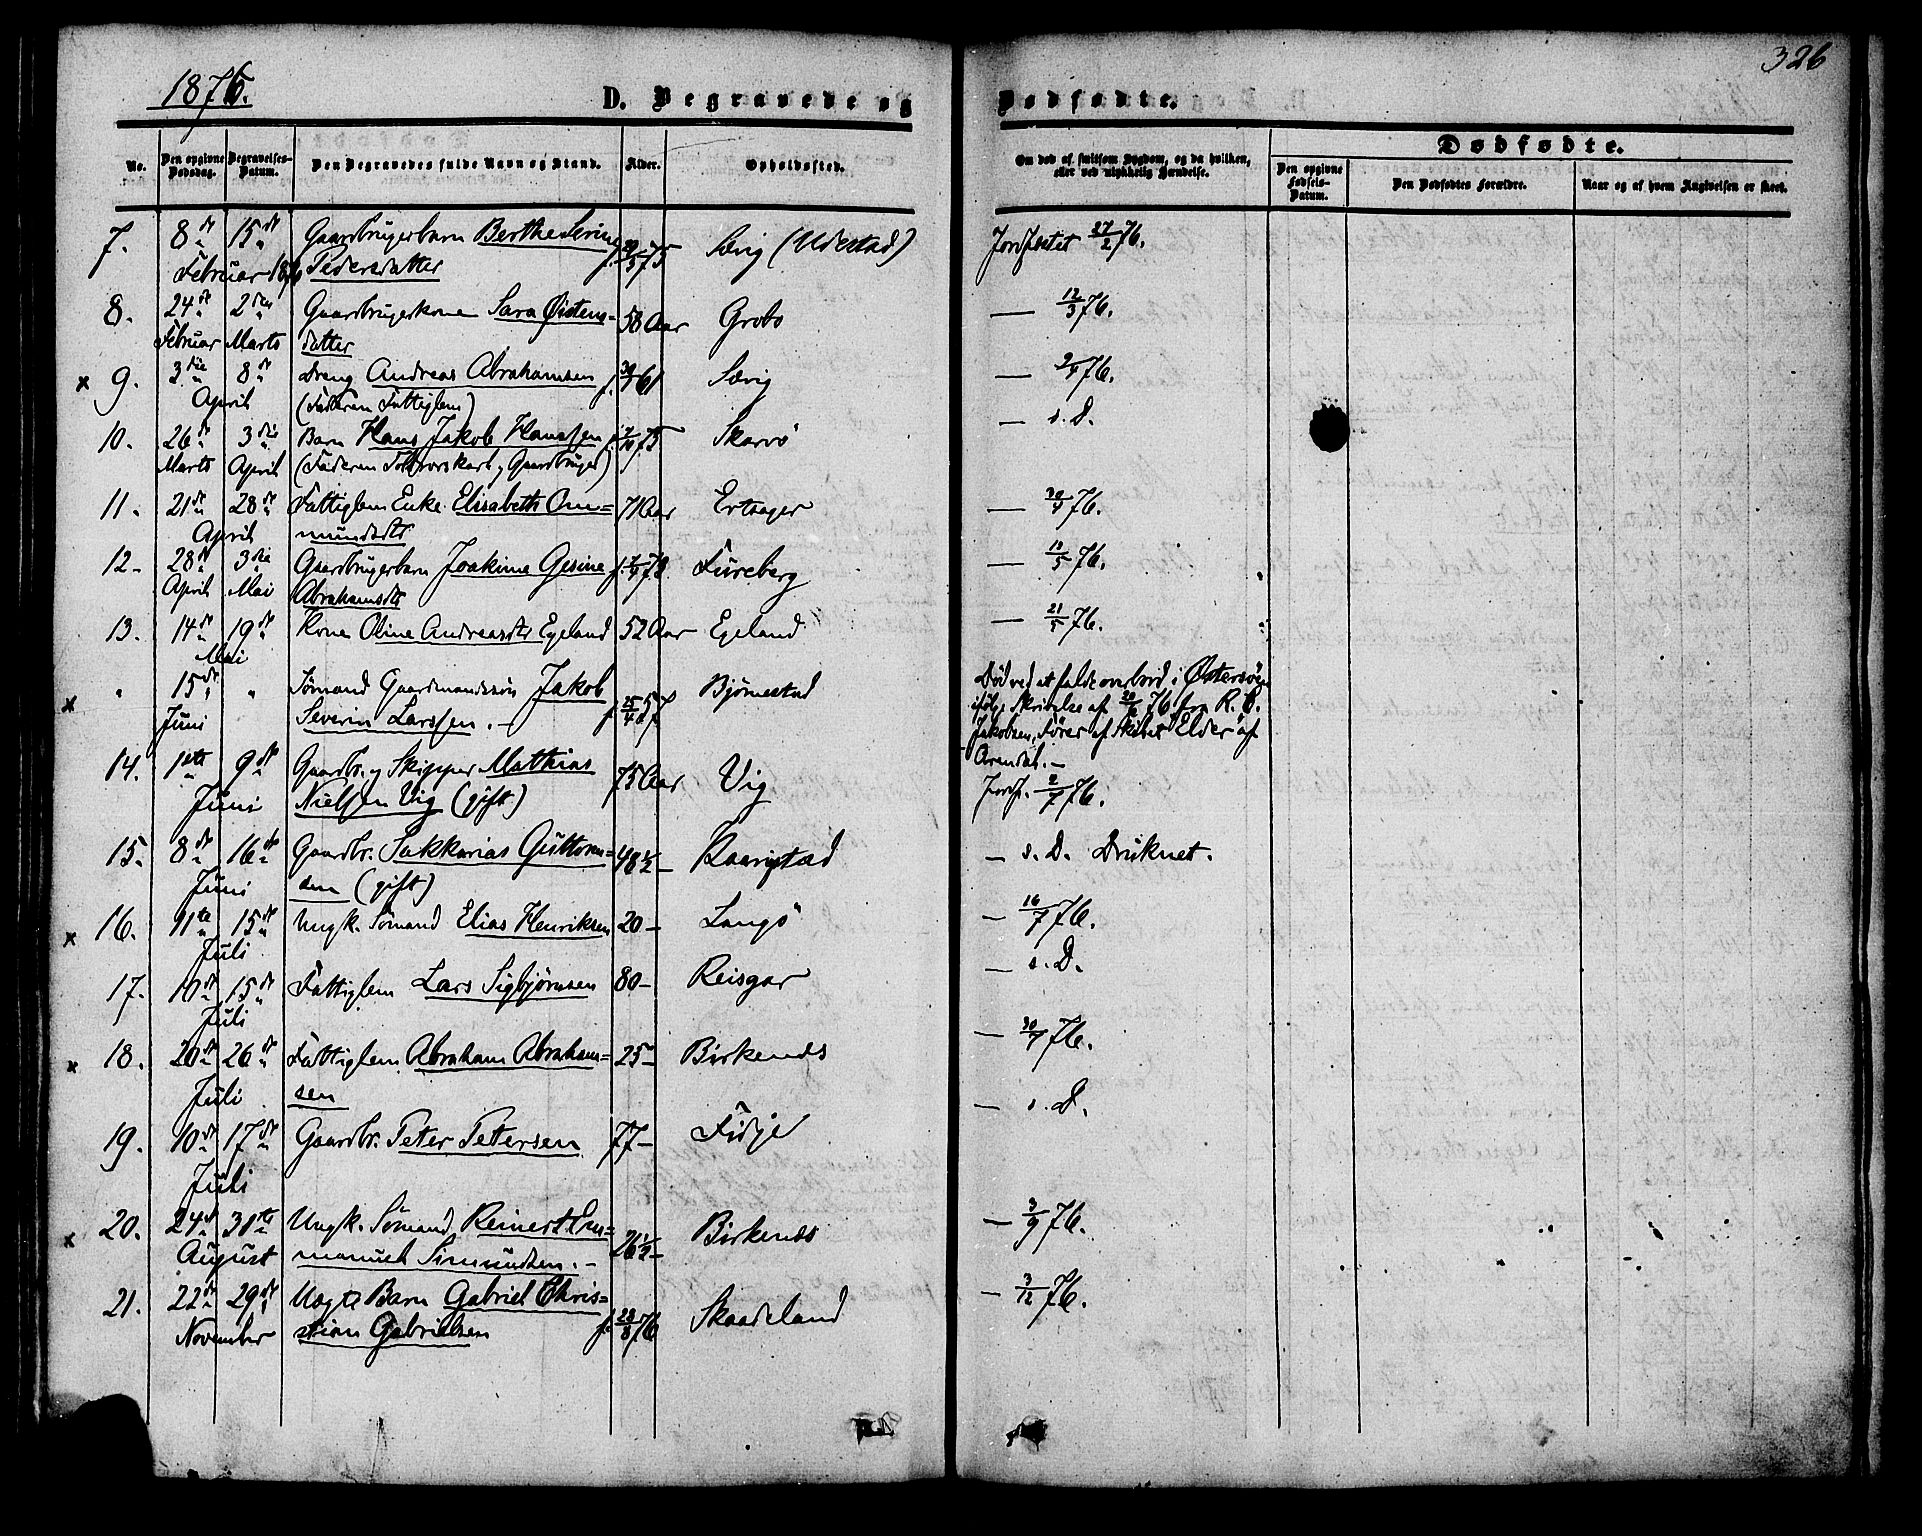 326
1876.
D. Begravede og Dødfødte.
No. Den opgivne Dødsdag. Begravelses-Datum. Den Begravedes fulde Navn og Stand. Alder. Opholdssted. Om død af smitsom Sygdom, og da hvilken, eller ved ulykkelig Hændelse.
Dødfødte.
Den opgivne Fødsels-Datum. Den Dødfødtes Forældre. Naar og af hvem Angivelsen er skeet.
7. 8de 15de Gaardbrugerbarn Berthe Serine f. 29/5 75 Sævig (Udestad) Jordfæstet 27/2 76.
Februar 1876 Pedersdatter
8. 24de 2den Gaardbrugerkone Sara Østens= 58 Aar Grobo — 12/3 76.
Februar Marts datter
x 9. 3die 8de Dreng Andreas Abrahamsen f. 61 Sævig — 2/4 76.
April (Faderen Fattiglem)
10. 26de 3die Barn Hans Jakob Hanssen f. 75 Skarvø — s. D.
Marts April (Faderen og Gaardbruger)
11. 21de 28de Fattiglem Enke Elisabeth Om= 71 Aar Ertzager — 30/4 76.
April mundsdtr
12. 28de 3die Gaardbrugerbarn Joakime Gesine f. Fureberg — 76.
April Mai Abrahamsdtr
13. 14de 19de Kone Oline Andreasdtr Egeland 52 Aar Egeland — 21/5 76.
Mai
x " 15de " Sømand Gaardmandssøn Jakob f. 25/4 57 Bjørnestad Død ved at falde overbord i Østersøen
Juni Severin Larssen. — ifølge Skrivelse af 76 fra R. B.
Jakobsen, Fører af Skibet Elder af
Arendal. —
14. 1ste 9de Gaardbr. og Skipper Mathias 75 Aar Vig Jordf. 2/7 76.
Juni Nielssen Vig (gift)
15. 8de 16de Gaardbr. Sakkarias Guttorm= 48 1/2 — Kaaregstad — s. D. Druknet.
Juni sen (gift)
x 16. 11te 15de Ungk. Sømand Elias Henriksen 20 — Langø — 16/7 76.
Juli
17. 10de 15de Fattiglem Lars Sigbjørnsen 80 — Reisgar — s. D.
Juli
x 18. 20de 26de Fattiglem Abraham Abraham= 25 — Birkenes — 30/7 76.
Juli sen
19. 10de 17de Gaardbr. Peter Pettersen 77 — Fidje — s. D.
Juli
x 20. 24de 31te Ungk. Sømand Reinert Em= 26 1/2 — Birkenes — 3/9 76.
August manuel Simundsen. —
21. 22de 29de Uægte Barn Gabriel Chris= f. 28/8 76 Skaadeland — 3/12 76.
November stian Gabrielsen